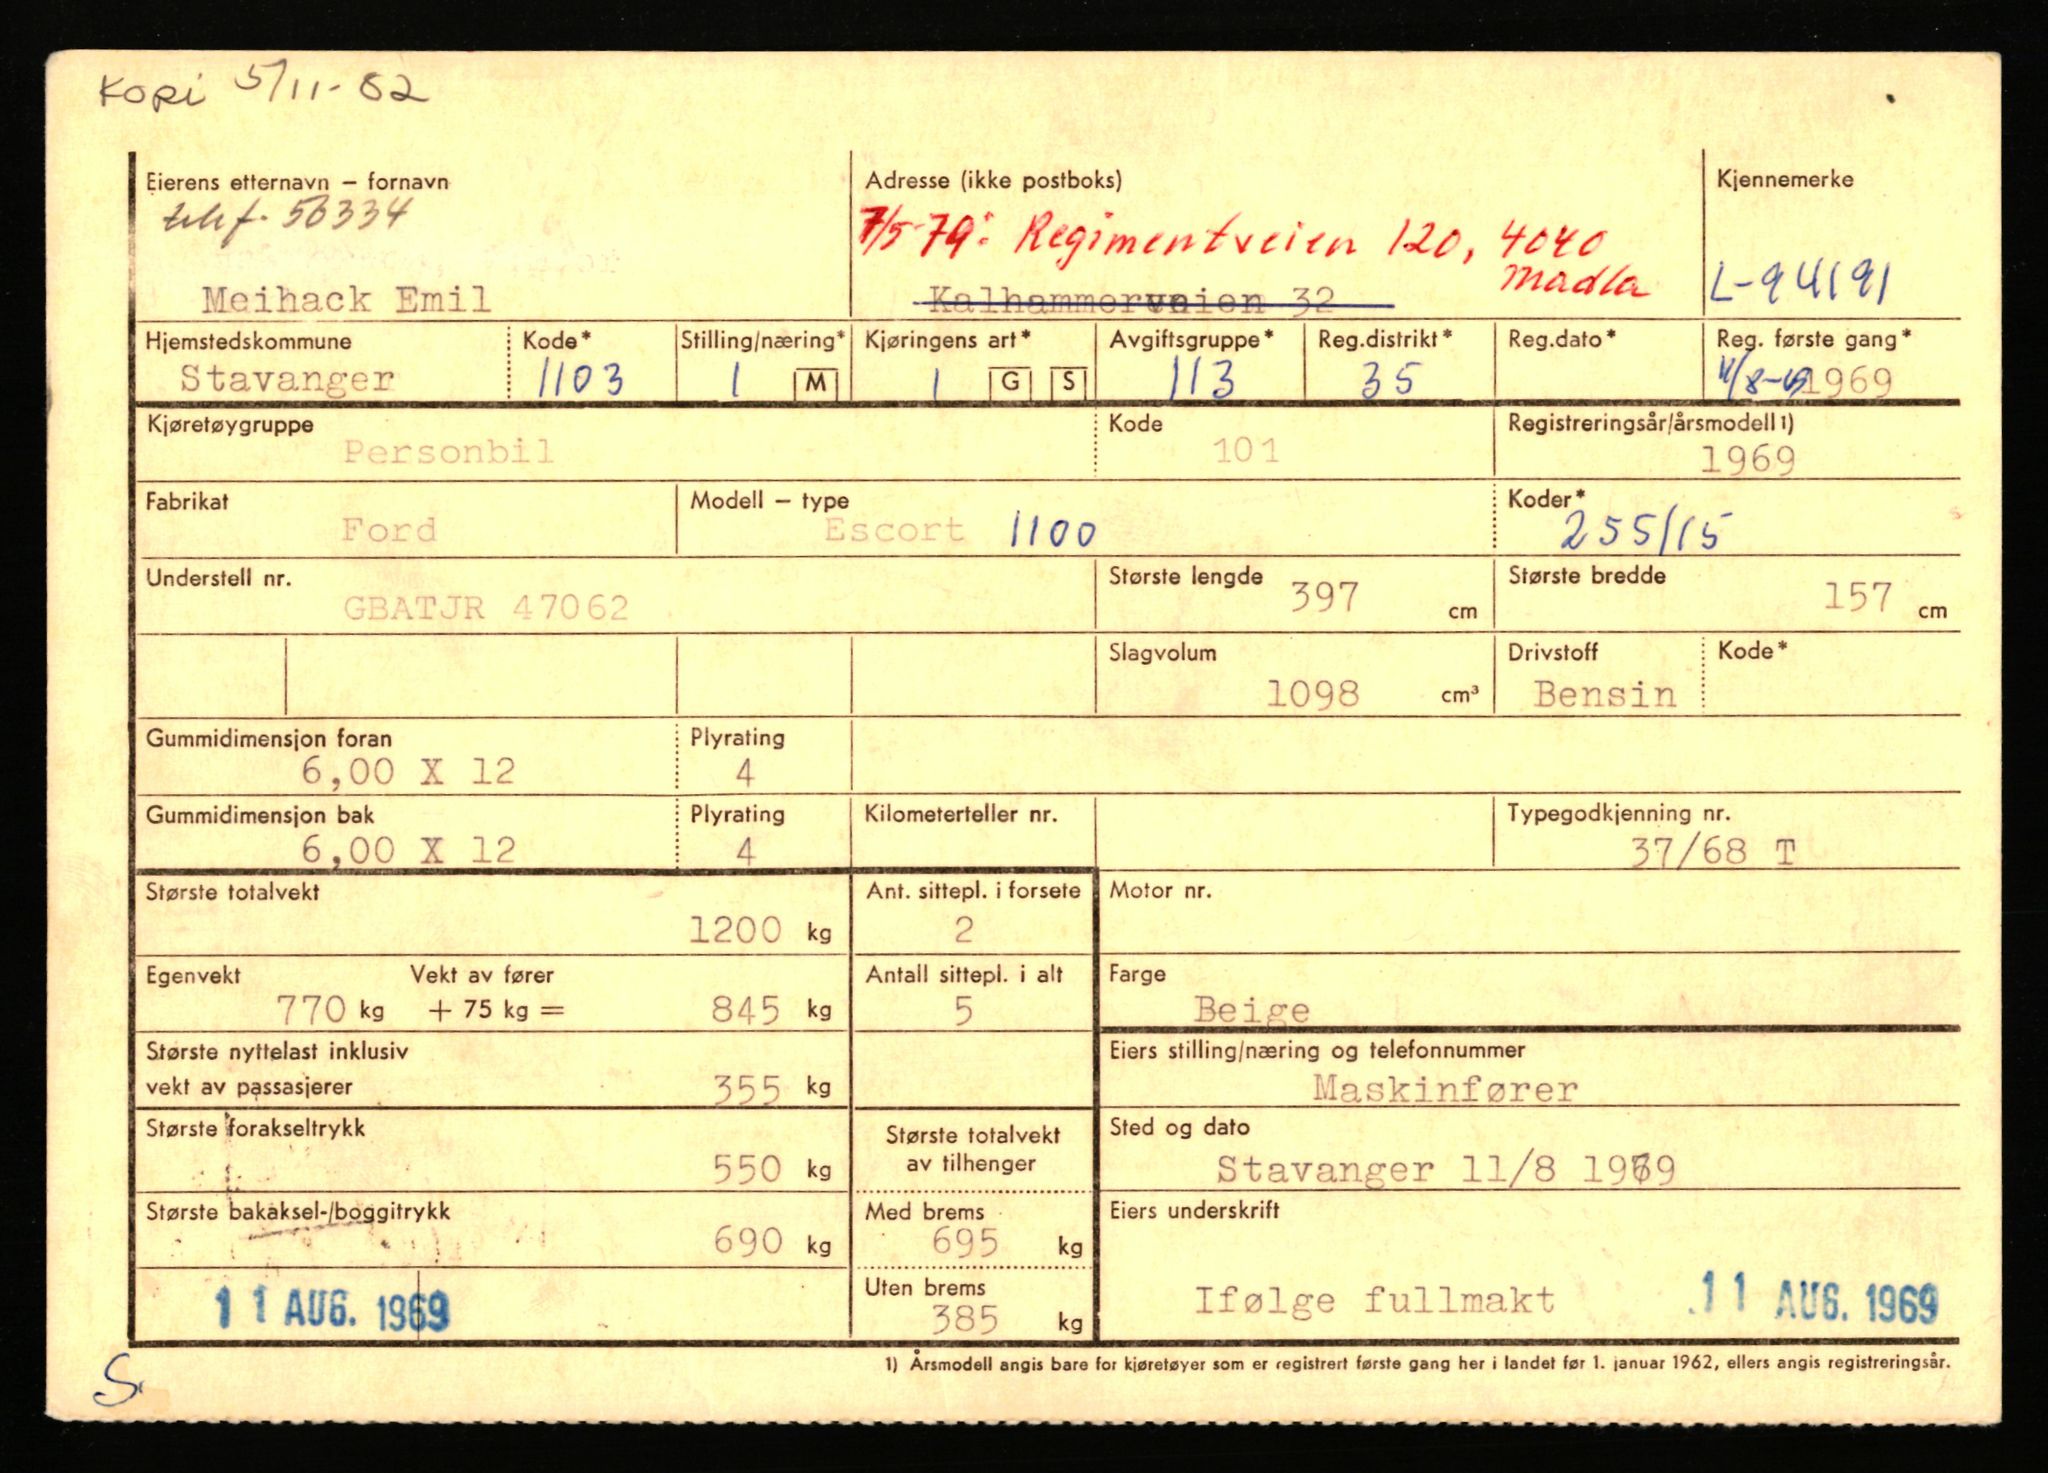 Kopi 5/11-82
Eierens etternavn – fornavn
telf. 56334
Meihack Emil
Adresse (ikke postboks)
7/5-79: Regimentveien 120, 4040
Madla
Kalhammerveien 32
Kjennemerke
L-94191
Hjemstedskommune
Stavanger
Kode*
1103
Stilling/næring*
1 M
Kjøringens art*
1 G S
Avgiftsgruppe*
113
Reg.distrikt*
35
Reg.dato*
Reg. første gang*
11/8-69 1969
Kjøretøygruppe
Personbil
Kode
101
Registreringsår/årsmodell 1)
1969
Fabrikat
Ford
Modell – type
Escort 1100
Koder*
255/15
Understell nr.
GBATJR 47062
Største lengde
397 cm
Største bredde
157 cm
Slagvolum
1098 cm³
Drivstoff
Bensin
Kode*
Gummidimensjon foran
6,00 X 12
Plyrating
4
Gummidimensjon bak
6,00 X 12
Plyrating
4
Kilometerteller nr.
Typegodkjenning nr.
37/68 T
Største totalvekt
1200 kg
Ant. sittepl. i forsete
2
Motor nr.
Egenvekt Vekt av fører
770 kg + 75 kg = 845 kg
Antall sittepl. i alt
5
Farge
Beige
Største nyttelast inklusiv
vekt av passasjerer 355 kg
Eiers stilling/næring og telefonnummer
Maskinfører
Største forakseltrykk
550 kg
Største totalvekt
av tilhenger
Sted og dato
Stavanger 11/8 1969
Største bakaksel-/boggitrykk
690 kg
Med brems
695 kg
Uten brems
385 kg
Eiers underskrift
Ifølge fullmakt
11 AUG. 1969
11 AUG. 1969
1) Årsmodell angis bare for kjøretøyer som er registrert første gang her i landet før 1. januar 1962, ellers angis registreringsår.
S